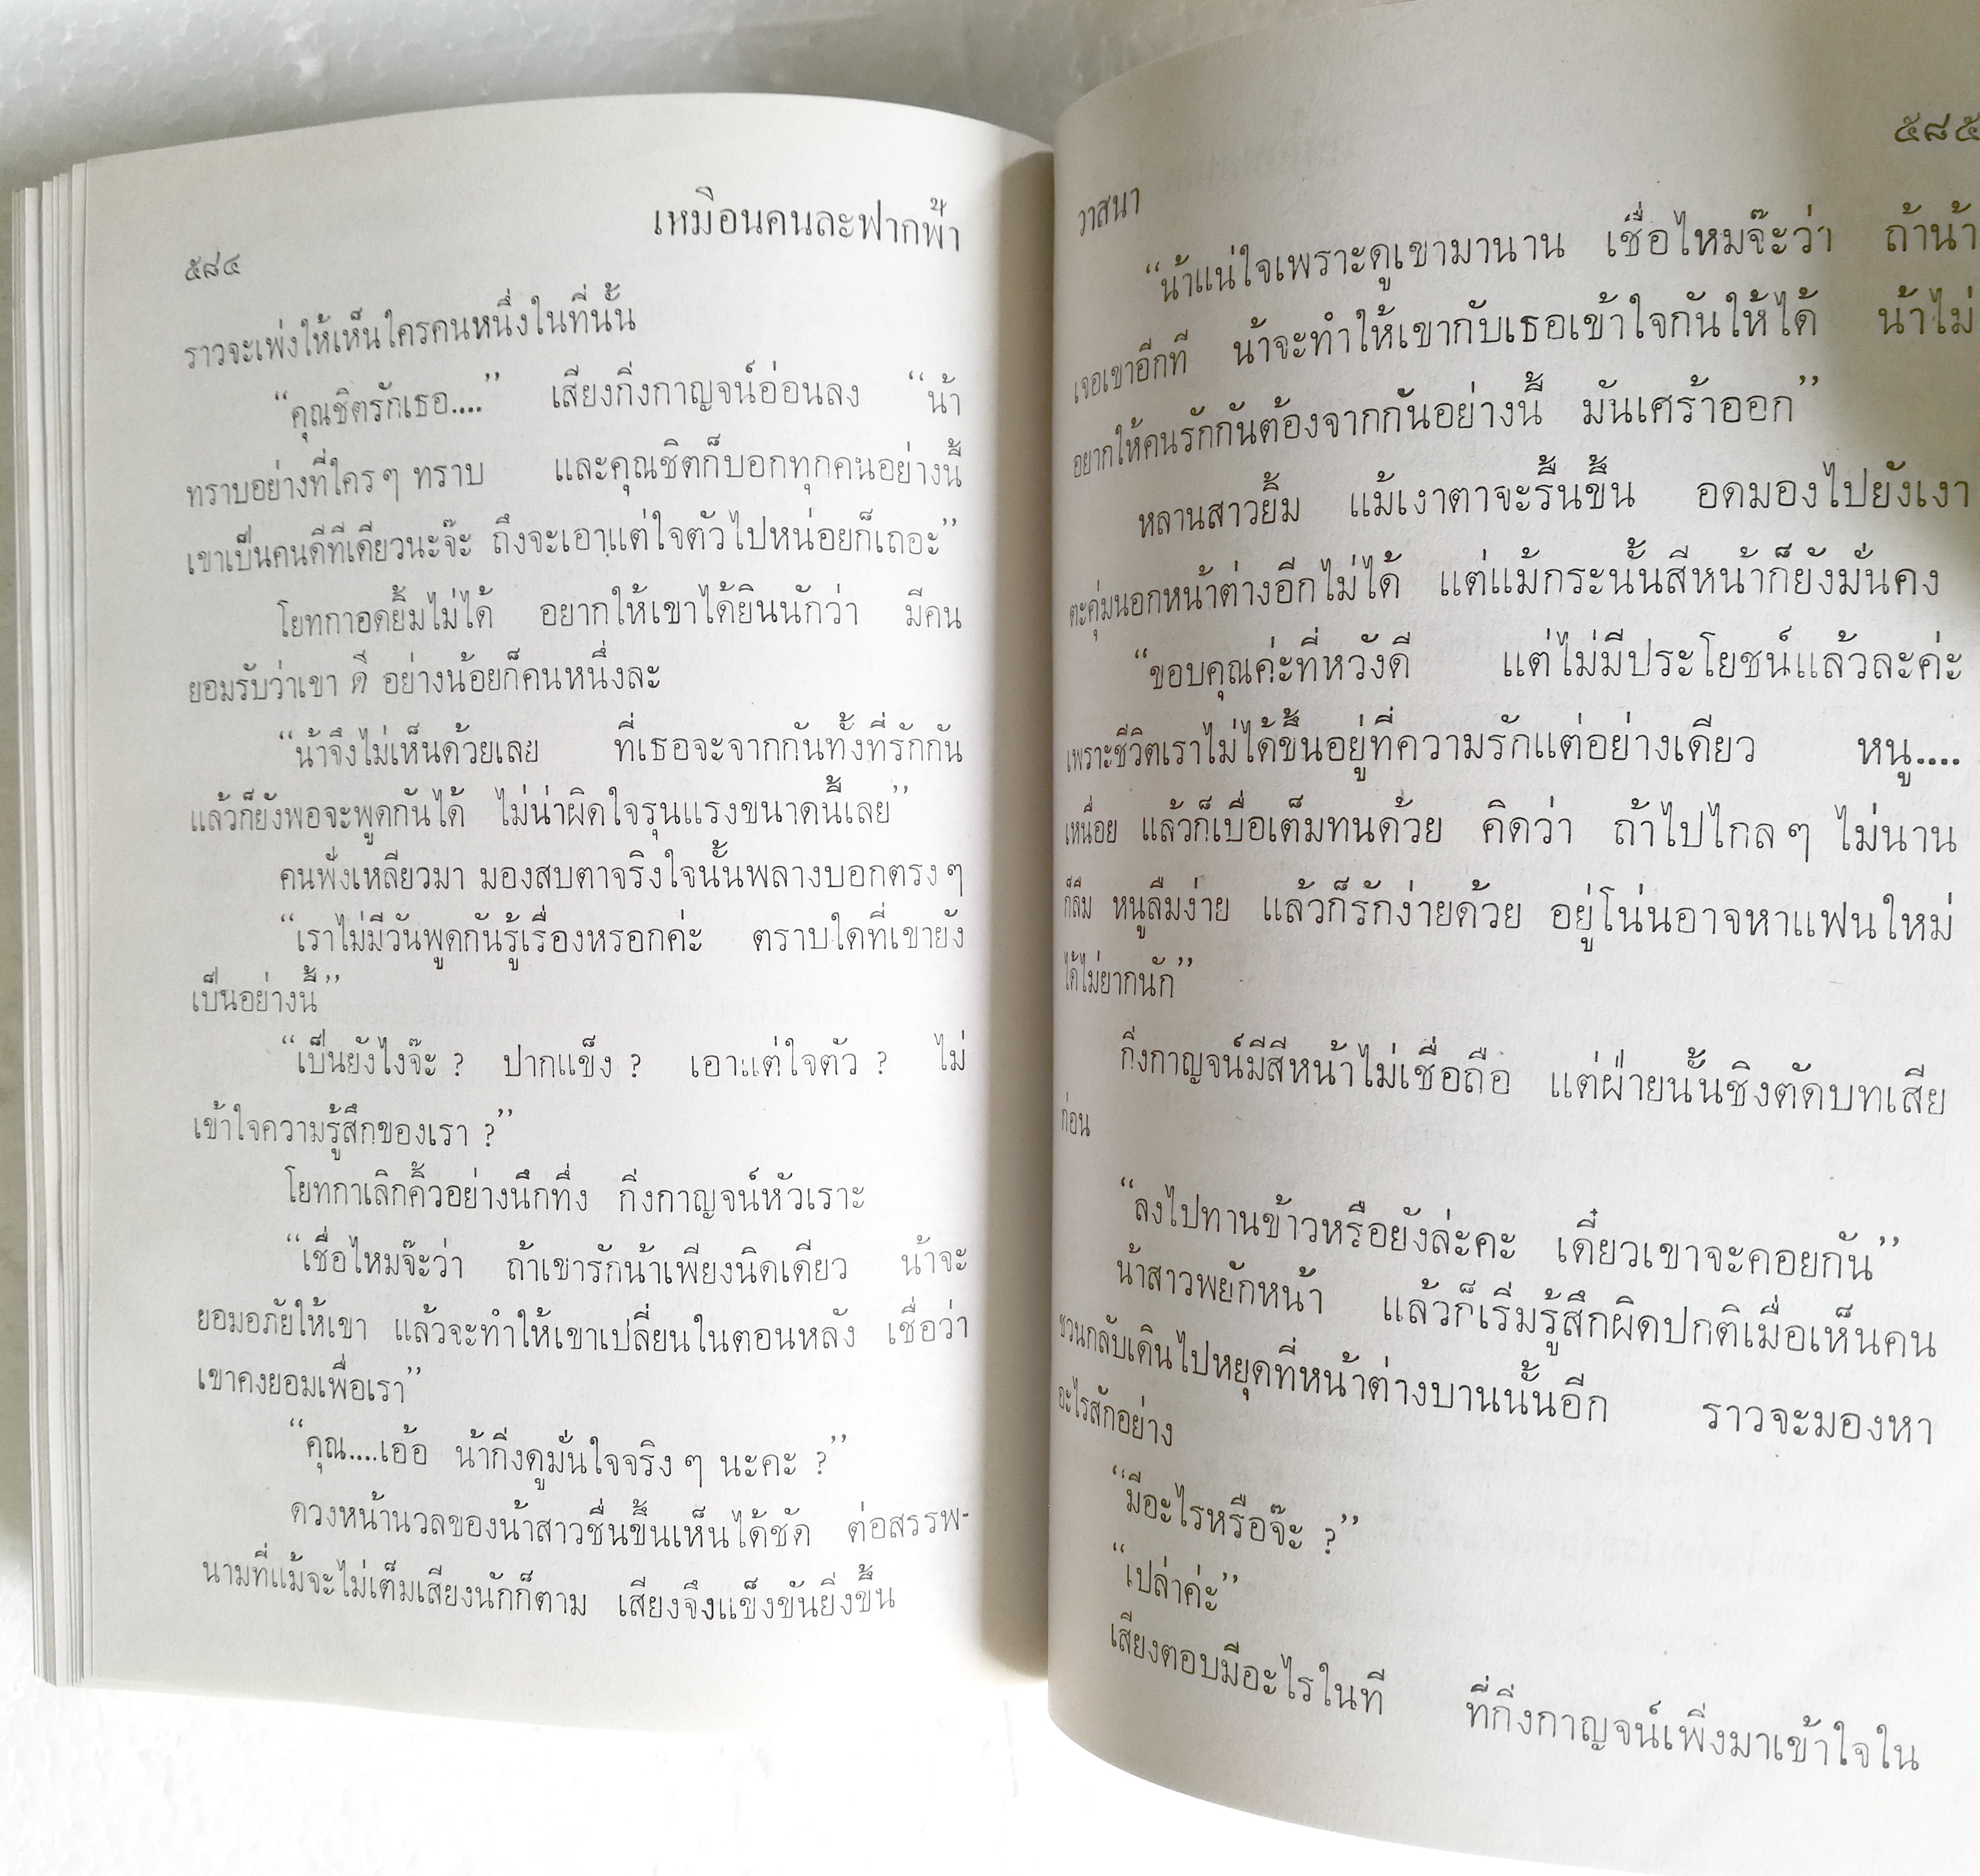 เหมือนคนละฟากฟ้า
๕๘๔
ราวจะเพ่งให้เห็นใครคนหนึ่งในที่นั้น
“คุณชิตรักเธอ....” เสียงกิ่งกาญจน์อ่อนลง “น้า
ทราบอย่างที่ใครๆ ทราบ และคุณชิตก็บอกทุกคนอย่างนี้
เขาเป็นคนดีทีเดียวนะจ๊ะ ถึงจะเอาแต่ใจตัวไปหน่อยก็เถอะ”
โยทกาอดยิ้มไม่ได้ อยากให้เขาได้ยินนักว่า มีคน
ยอมรับว่าเขา ดี อย่างน้อยก็คนหนึ่งละ
“น้าจึงไม่เห็นด้วยเลย ที่เธอจะจากกันทั้งที่รักกัน
แล้วก็ยังพอจะพูดกันได้ ไม่น่าผิดใจรุนแรงขนาดนี้เลย”
คนฟังเหลียวมา มองสบตาจริงใจนั้นพลางบอกตรง ๆ
“เราไม่มีวันพูดกันรู้เรื่องหรอกค่ะ ตราบใดที่เขายัง
เป็นอย่างนี้”
“เป็นยังไงจ๊ะ ? ปากแข็ง ? เอาแต่ใจตัว ? ไม่
เข้าใจความรู้สึกของเรา ?”
โยทกาเลิกคิ้วอย่างนึกทึ่ง กิ่งกาญจน์หัวเราะ
“เชื่อไหมจ๊ะว่า ถ้าเขารักน้าเพียงนิดเดียว น้าจะ
ยอมอภัยให้เขา แล้วจะทำให้เขาเปลี่ยนในตอนหลัง เชื่อว่า
เขาคงยอมเพื่อเรา”
“คุณ....เอ้อ น้ากิ่งดูมั่นใจจริง ๆ นะคะ ?”
ดวงหน้านวลของน้าสาวชื่นขึ้นเห็นได้ชัด ต่อสรรพ-
นามที่แม้จะไม่เต็มเสียงนักก็ตาม เสียงจึงแข็งขันยิ่งขึ้น
๕๘๕
วาสนา
“น้าแน่ใจเพราะดูเขามานาน เชื่อไหมจ๊ะว่า ถ้าน้า
เจอเขาอีกที น้าจะทำให้เขากับเธอเข้าใจกันให้ได้ น้าไม่
อยากให้คนรักกันต้องจากกันอย่างนี้ มันเศร้าออก”
หลานสาวยิ้ม แม้เงาตาจะรื้นขึ้น อดมองไปยังเงา
ตะคุ่มนอกหน้าต่างอีกไม่ได้ แต่แม้กระนั้นสีหน้าก็ยังมั่นคง
“ขอบคุณค่ะที่หวังดี แต่ไม่มีประโยชน์แล้วละค่ะ
เพราะชีวิตเราไม่ได้ขึ้นอยู่ที่ความรักแต่อย่างเดียว หนู....
เหนื่อย แล้วก็เบื่อเต็มทนด้วย คิดว่า ถ้าไปไกล ๆ ไม่นาน
ก็ลืม หนูลืมง่าย แล้วก็รักง่ายด้วย อยู่โน่นอาจหาแฟนใหม่
ได้ไม่ยากนัก”
กิ่งกาญจน์มีสีหน้าไม่เชื่อถือ แต่ฝ่ายนั้นชิงตัดบทเสีย
ก่อน
“ลงไปทานข้าวหรือยังล่ะคะ เดี๋ยวเขาจะคอยกัน”
น้าสาวพยักหน้า แล้วก็เริ่มรู้สึกผิดปกติเมื่อเห็นคน
ชวนกลับเดินไปหยุดที่หน้าต่างบานนั้นอีก ราวจะมองหา
อะไรสักอย่าง
“มีอะไรหรือจ๊ะ ?”
“เปล่าค่ะ”
เสียงตอบมีอะไรในที ที่กิ่งกาญจน์เพิ่งมาเข้าใจใน